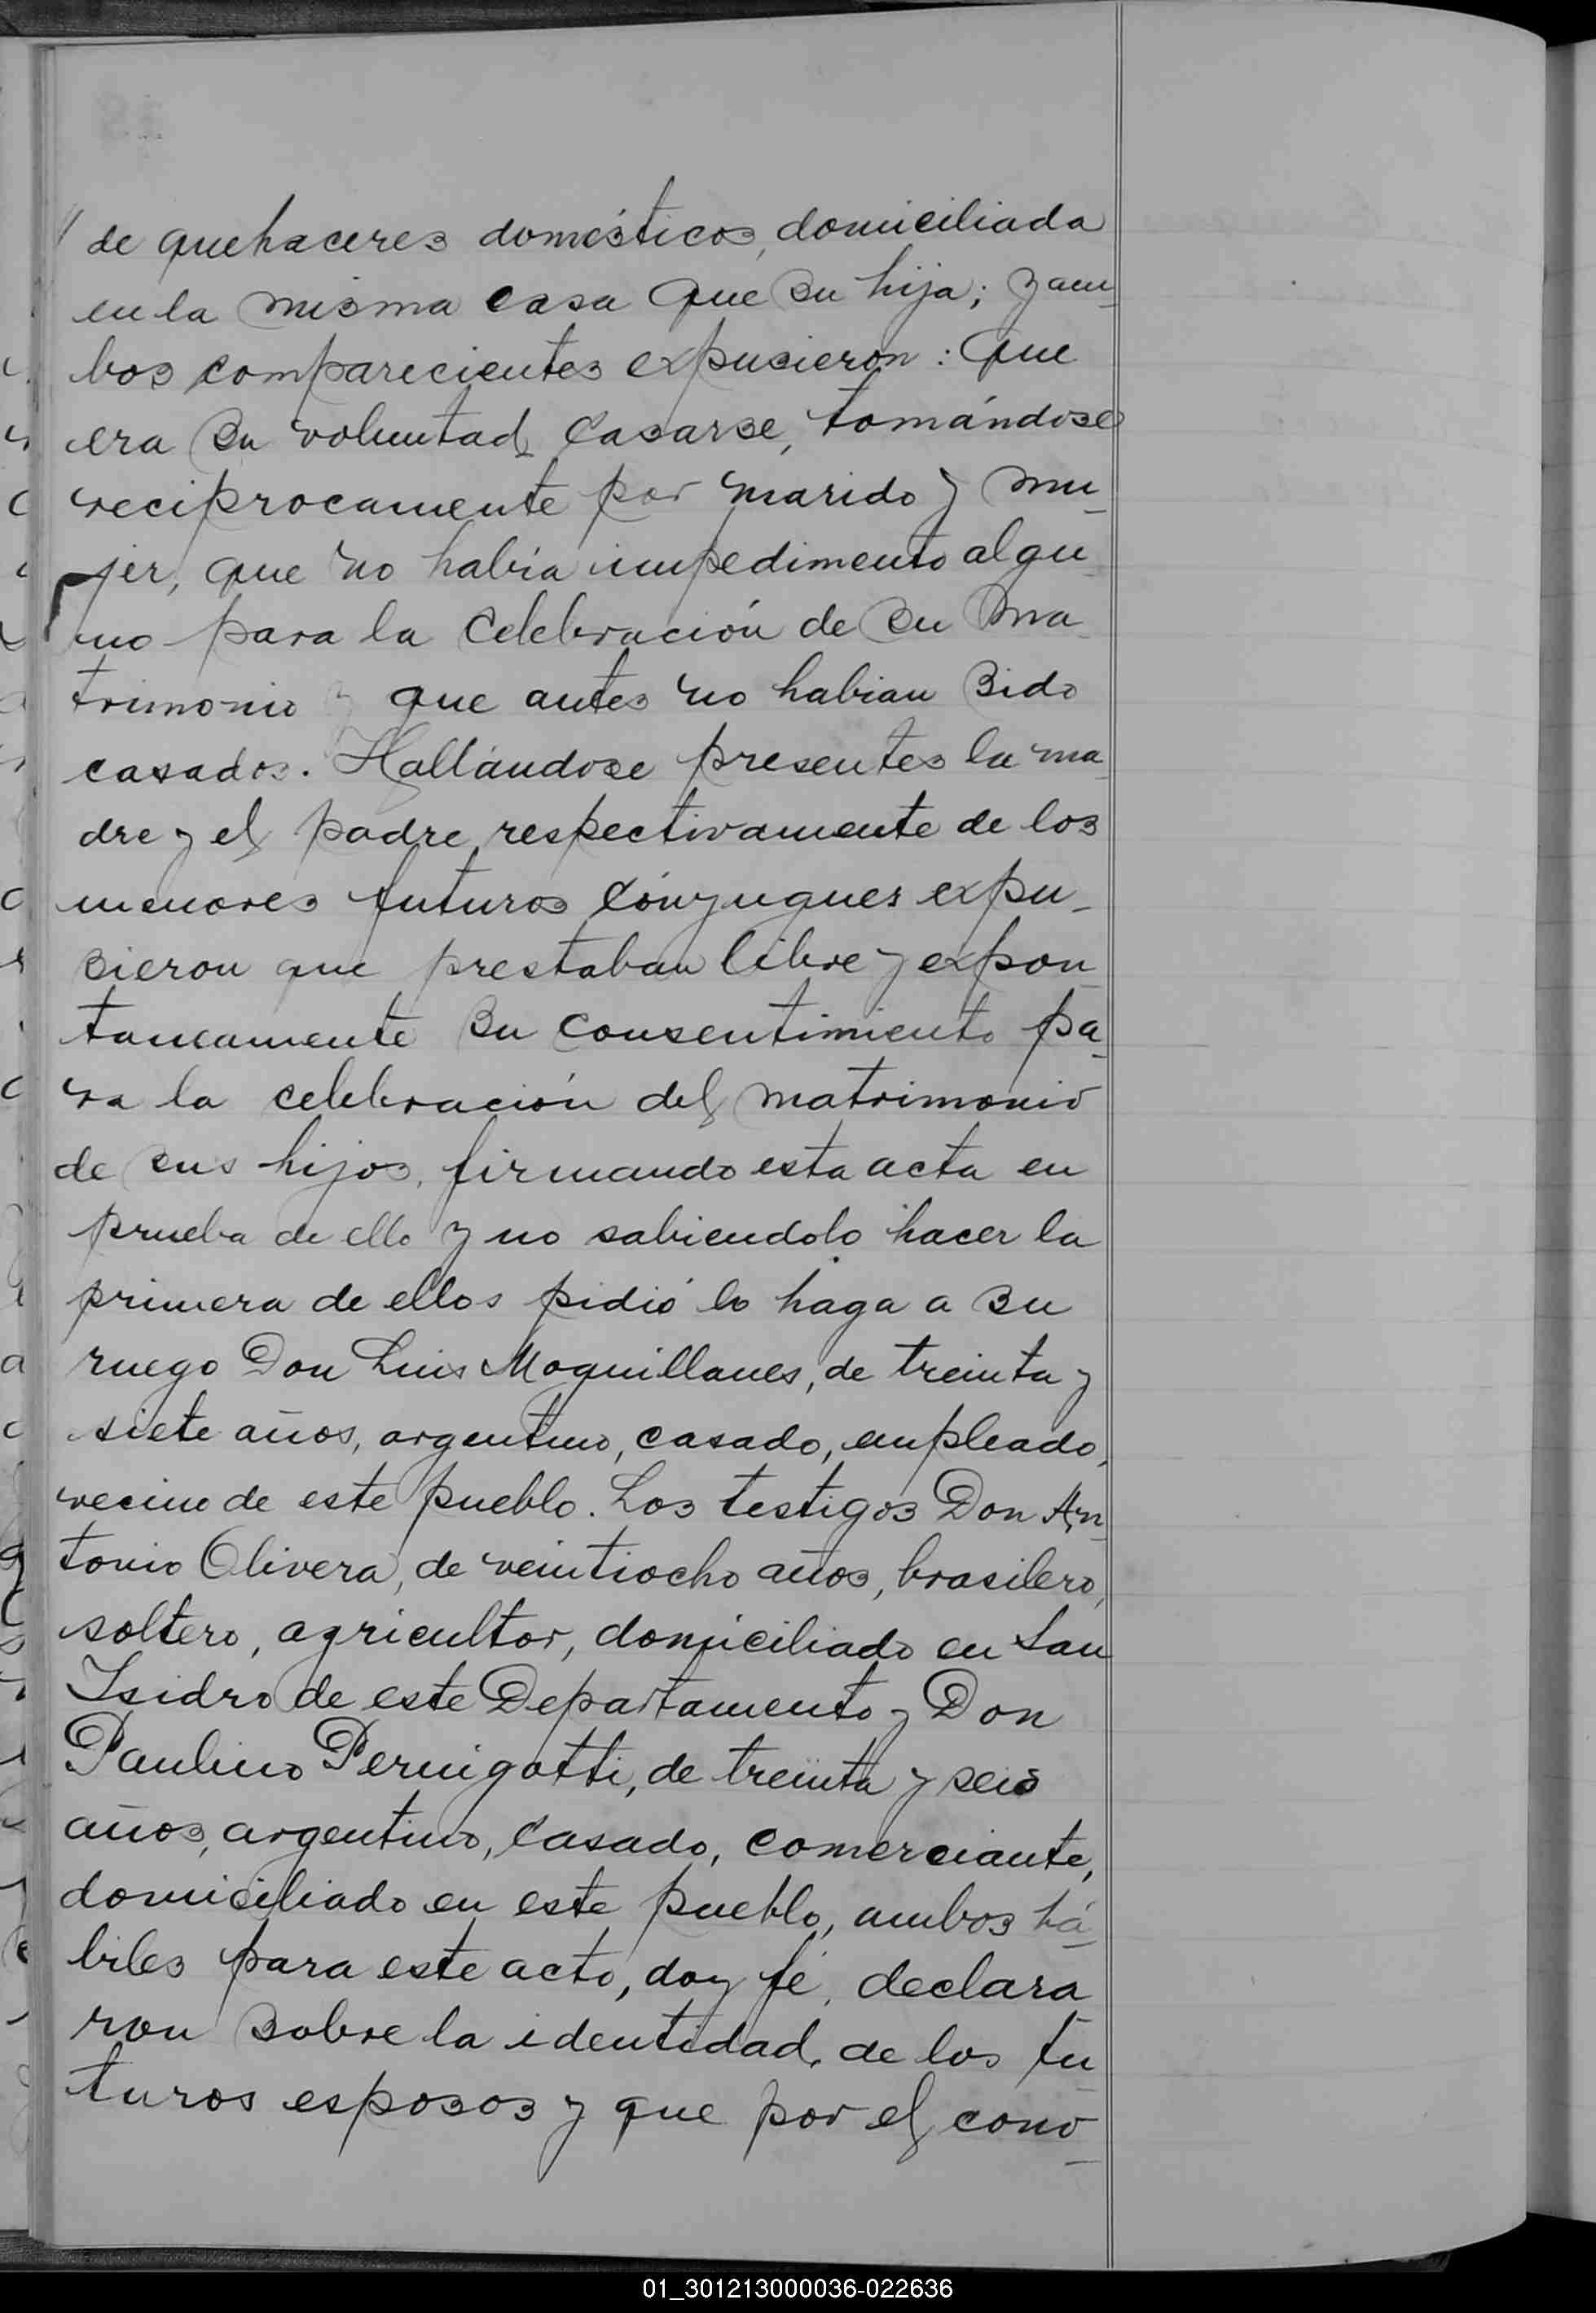 // de quehaceres domésticos, domiciliada
en la misma casa que su hija; y am-
bos comparecientes expusieron: que
era su voluntad casarse, tomándose
reciprocamente por marido y mu-
jer, que no había impedimento algu-
no para la celebración de su ma-
trimonio y que antes no habian sido
casados. Hallándose presentes la ma-
dre y el padre respectivamente de los
menores futuros cónyugues expu-
sieron que prestaban libre y expon-
taneamente su consentimiento pa-
ra la celebración del matrimonio
de sus hijos, firmando esta acta en
prueba de ello y no sabiendolo hacer la
primera de ellos pidió lo haga a su
ruego Don Luis Moquillanes, de treinta y
siete años, argentino, casado, empleado,
vecino de este pueblo. Los testigos Don An-
tonio Olivera, de veintiocho años, brasilero,
soltero, agricultor, domiciliado en San
Isidro de este Departamento y Don
Paulino Pernigotti, de treinta y seis
años, argentino, casado, comerciante,
domiciliado en este pueblo, ambos há-
biles para este acto, doy fé, declara-
ron sobre la identidad de los fu-
turos esposos y que por el cono-
01_301213000036-022636